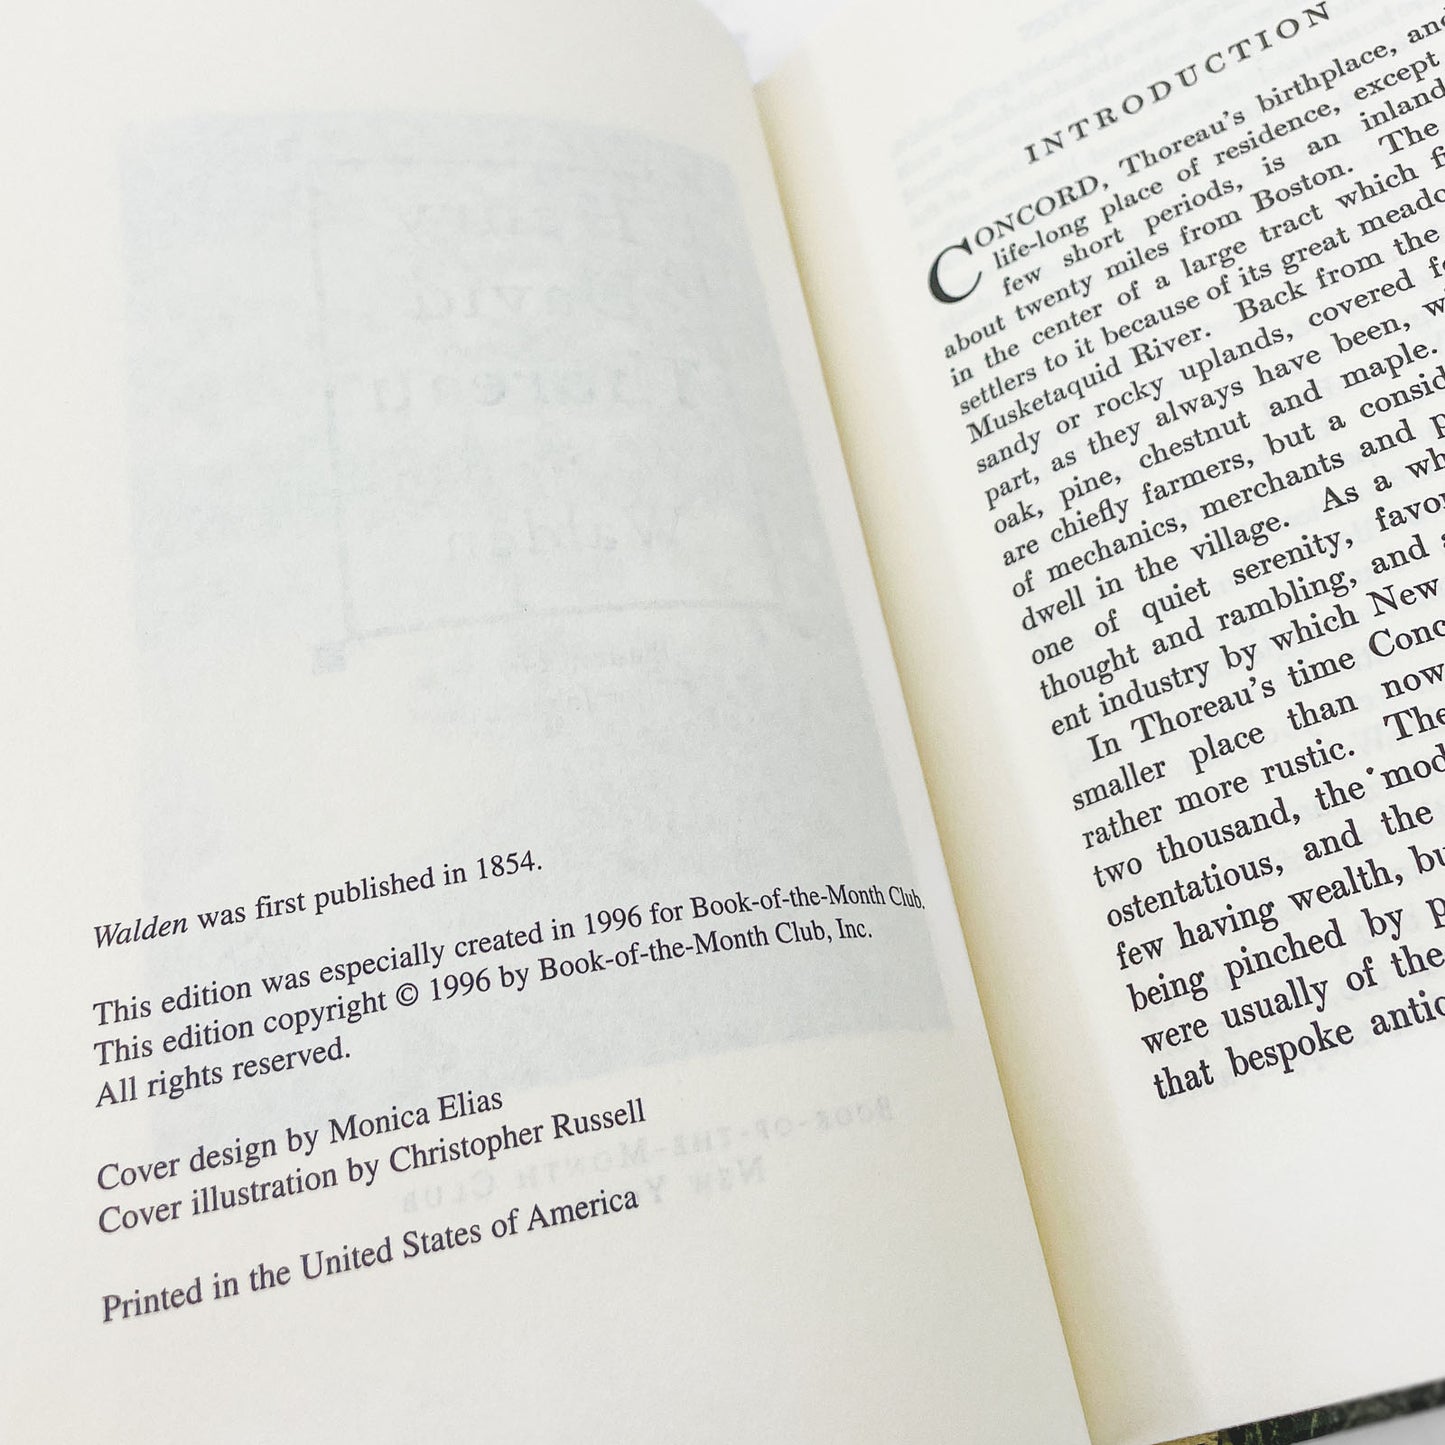 Walden was first published in 1854.
This edition was especially created in 1996 for Book-of-the-Month Club,
This edition copyright © 1996 by Book-of-the-Month Club, Inc.
All rights reserved.
Cover design by Monica Elias
Cover illustration by Christopher Russell
Printed in the United States of America
INTRODUCTION
CONCORD, Thoreau's birthplace, and
life-long place of residence, except
few short periods, is an inland
about twenty miles from Boston. The
in the center of a large tract which
settlers to it because of its great
Musketaquid River. Back from the
sandy or rocky uplands, covered
part, as they always have been,
oak, pine, chestnut and maple.
are chiefly farmers, but a
of mechanics, merchants and
dwell in the village. As a
one of quiet serenity,
thought and rambling, and
ent industry by which New
In Thoreau's time
smaller place than now
rather more rustic. The
two thousand, the
ostentatious, and the
few having wealth,
being pinched by
were usually of the
that bespoke
BOOK-OF-THE-MONTH CLUB
NEW YORK